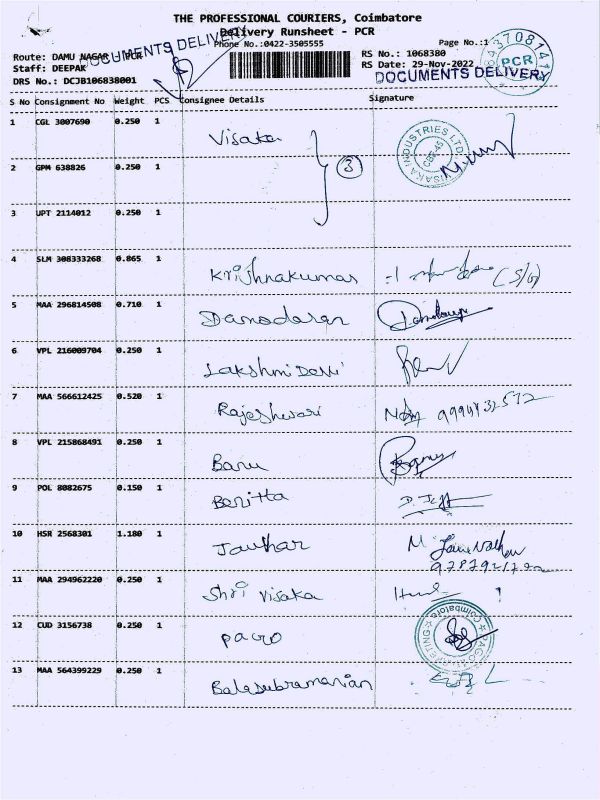 THE PROFESSIONAL COURIERS, Coimbatore
Delivery Runsheet - PCR
Phone No.:0422-3505555
Page No.:1
Route: DAMU NAGAR - PCR
RS No.: 1068380
Staff: DEEPAK
RS Date: 29-Nov-2022
DRS No.: DCJB106838001
DOCUMENTS DELIVERY
DOCUMENTS DELIVERY
PCR
S No Consignment No Weight PCS Consignee Details Signature
1 CGL 3007690 0.250 1 Visaka
VISAKA INDUSTRIES LTD
CBE-45
2 GPM 638826 0.250 1
3
3 UPT 2114012 0.250 1
4 SLM 308333268 0.865 1 Krishnakumar (S/G)
5 MAA 296814508 0.710 1 Damodaran
6 VPL 216009704 0.250 1 Lakshmi Devi
7 MAA 566612425 0.520 1 Rajeshwari
8 VPL 215868491 0.250 1 Banu
9 POL 8082675 0.150 1 Benitta
10 HSR 2568301 1.180 1 Jauhar
11 MAA 294962220 0.250 1 Shri Visaka
12 CUD 3156738 0.250 1 pago
Coimbatore
13 MAA 564399229 0.250 1 Balasubramanian